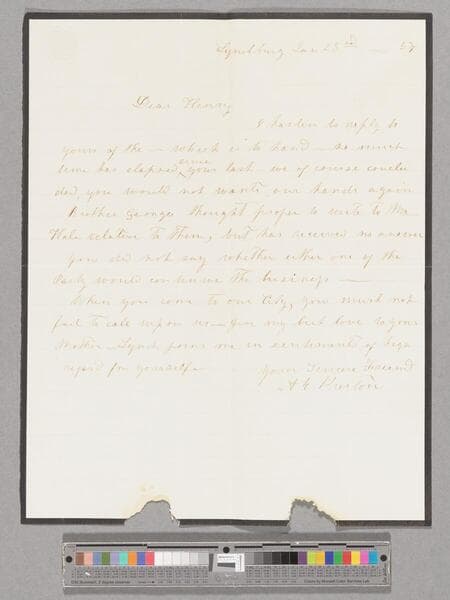 Lynchburg Jan 28th — 57
Dear Henry
I hasten to reply to
yours of the — which is to hand — so much
time has elapsed since your last we of course conclu
ded, you would not want our hands again
Brother George thought proper to write to Mr
Hale relative to them, but has received no answer
you did not say whether either one of the
Party would continue the business —
When you come to our City, you must not
fail to call upon us — Give my best love to your
Mother — Lynch joins me in sentiments of high
regard for yourself —
Your Sincere Friend
Preston